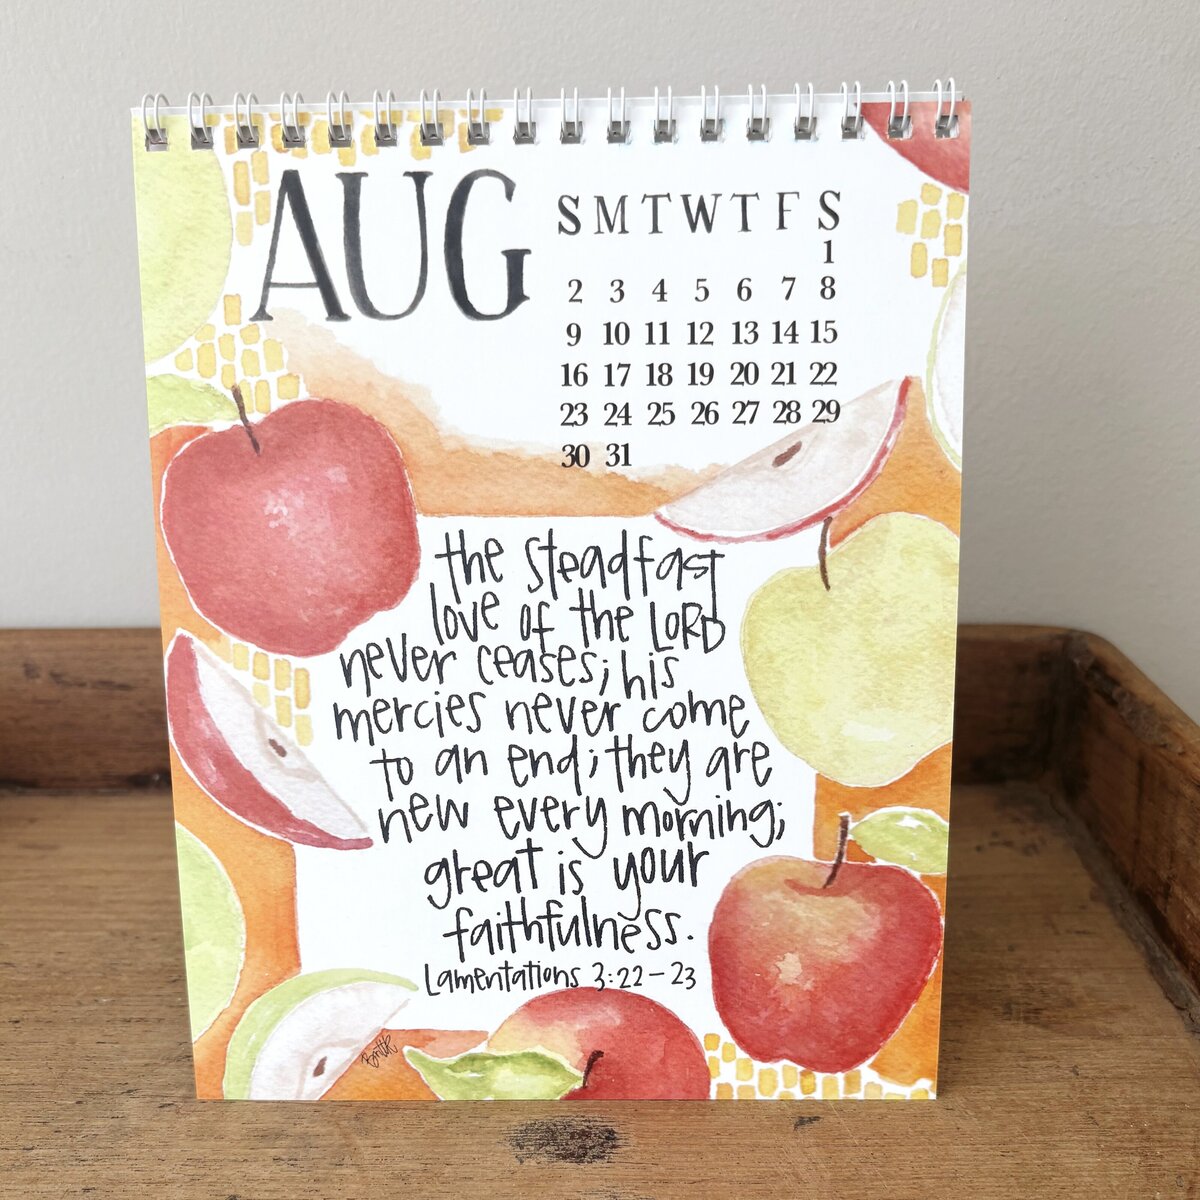 AUG
S M T W T F S
1
2 3 4 5 6 7 8
9 10 11 12 13 14 15
16 17 18 19 20 21 22
23 24 25 26 27 28 29
30 31
the steadfast
love of the LORD
never ceases; his
mercies never come
to an end; they are
new every morning;
great is your
faithfulness.
Lamentations 3:22-23